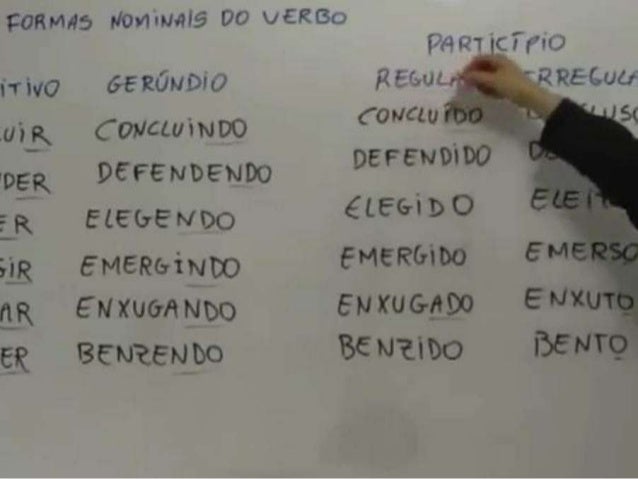 FORMAS NOMINAIS DO VERBO
PARTICÍPIO
ITIVO GERÚNDIO REGULA RREGULA
UIR CONCLUINDO CONCLUÍDO
DER DEFENDENDO DEFENDIDO
ER ELEGENDO ELEGIDO ELEIT
GIR EMERGINDO EMERGIDO EMERSO
AR ENXUGANDO ENXUGADO ENXUTO
ER BENZENDO BENZIDO BENTO